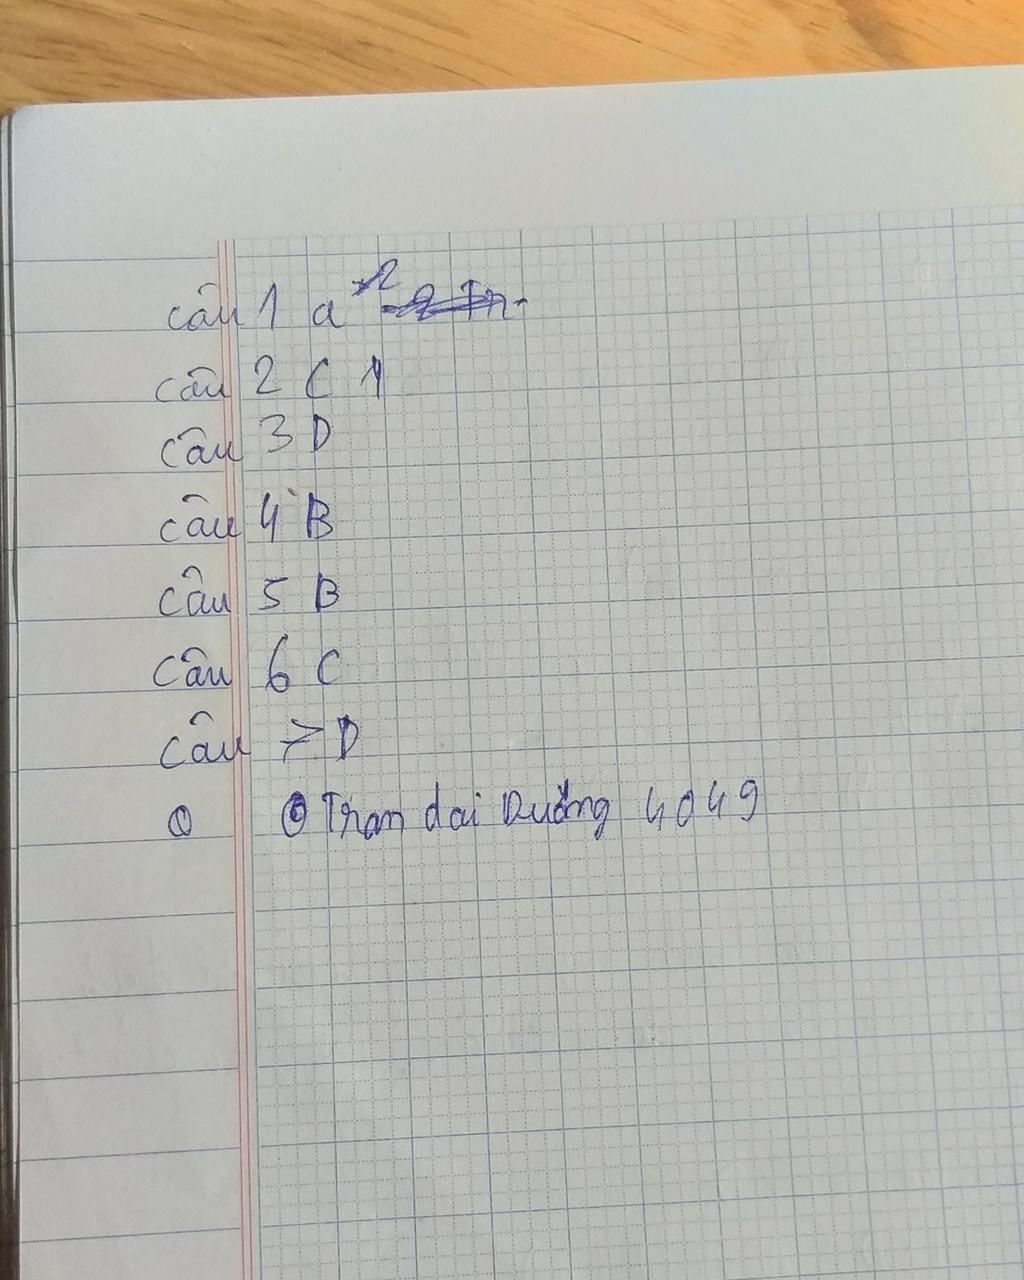 câu 1 a 2
câu 2 C 1
câu 3 D
câu 4 B
câu 5 B
câu 6 C
câu 7 D
Tran dai Dưỡng 4049